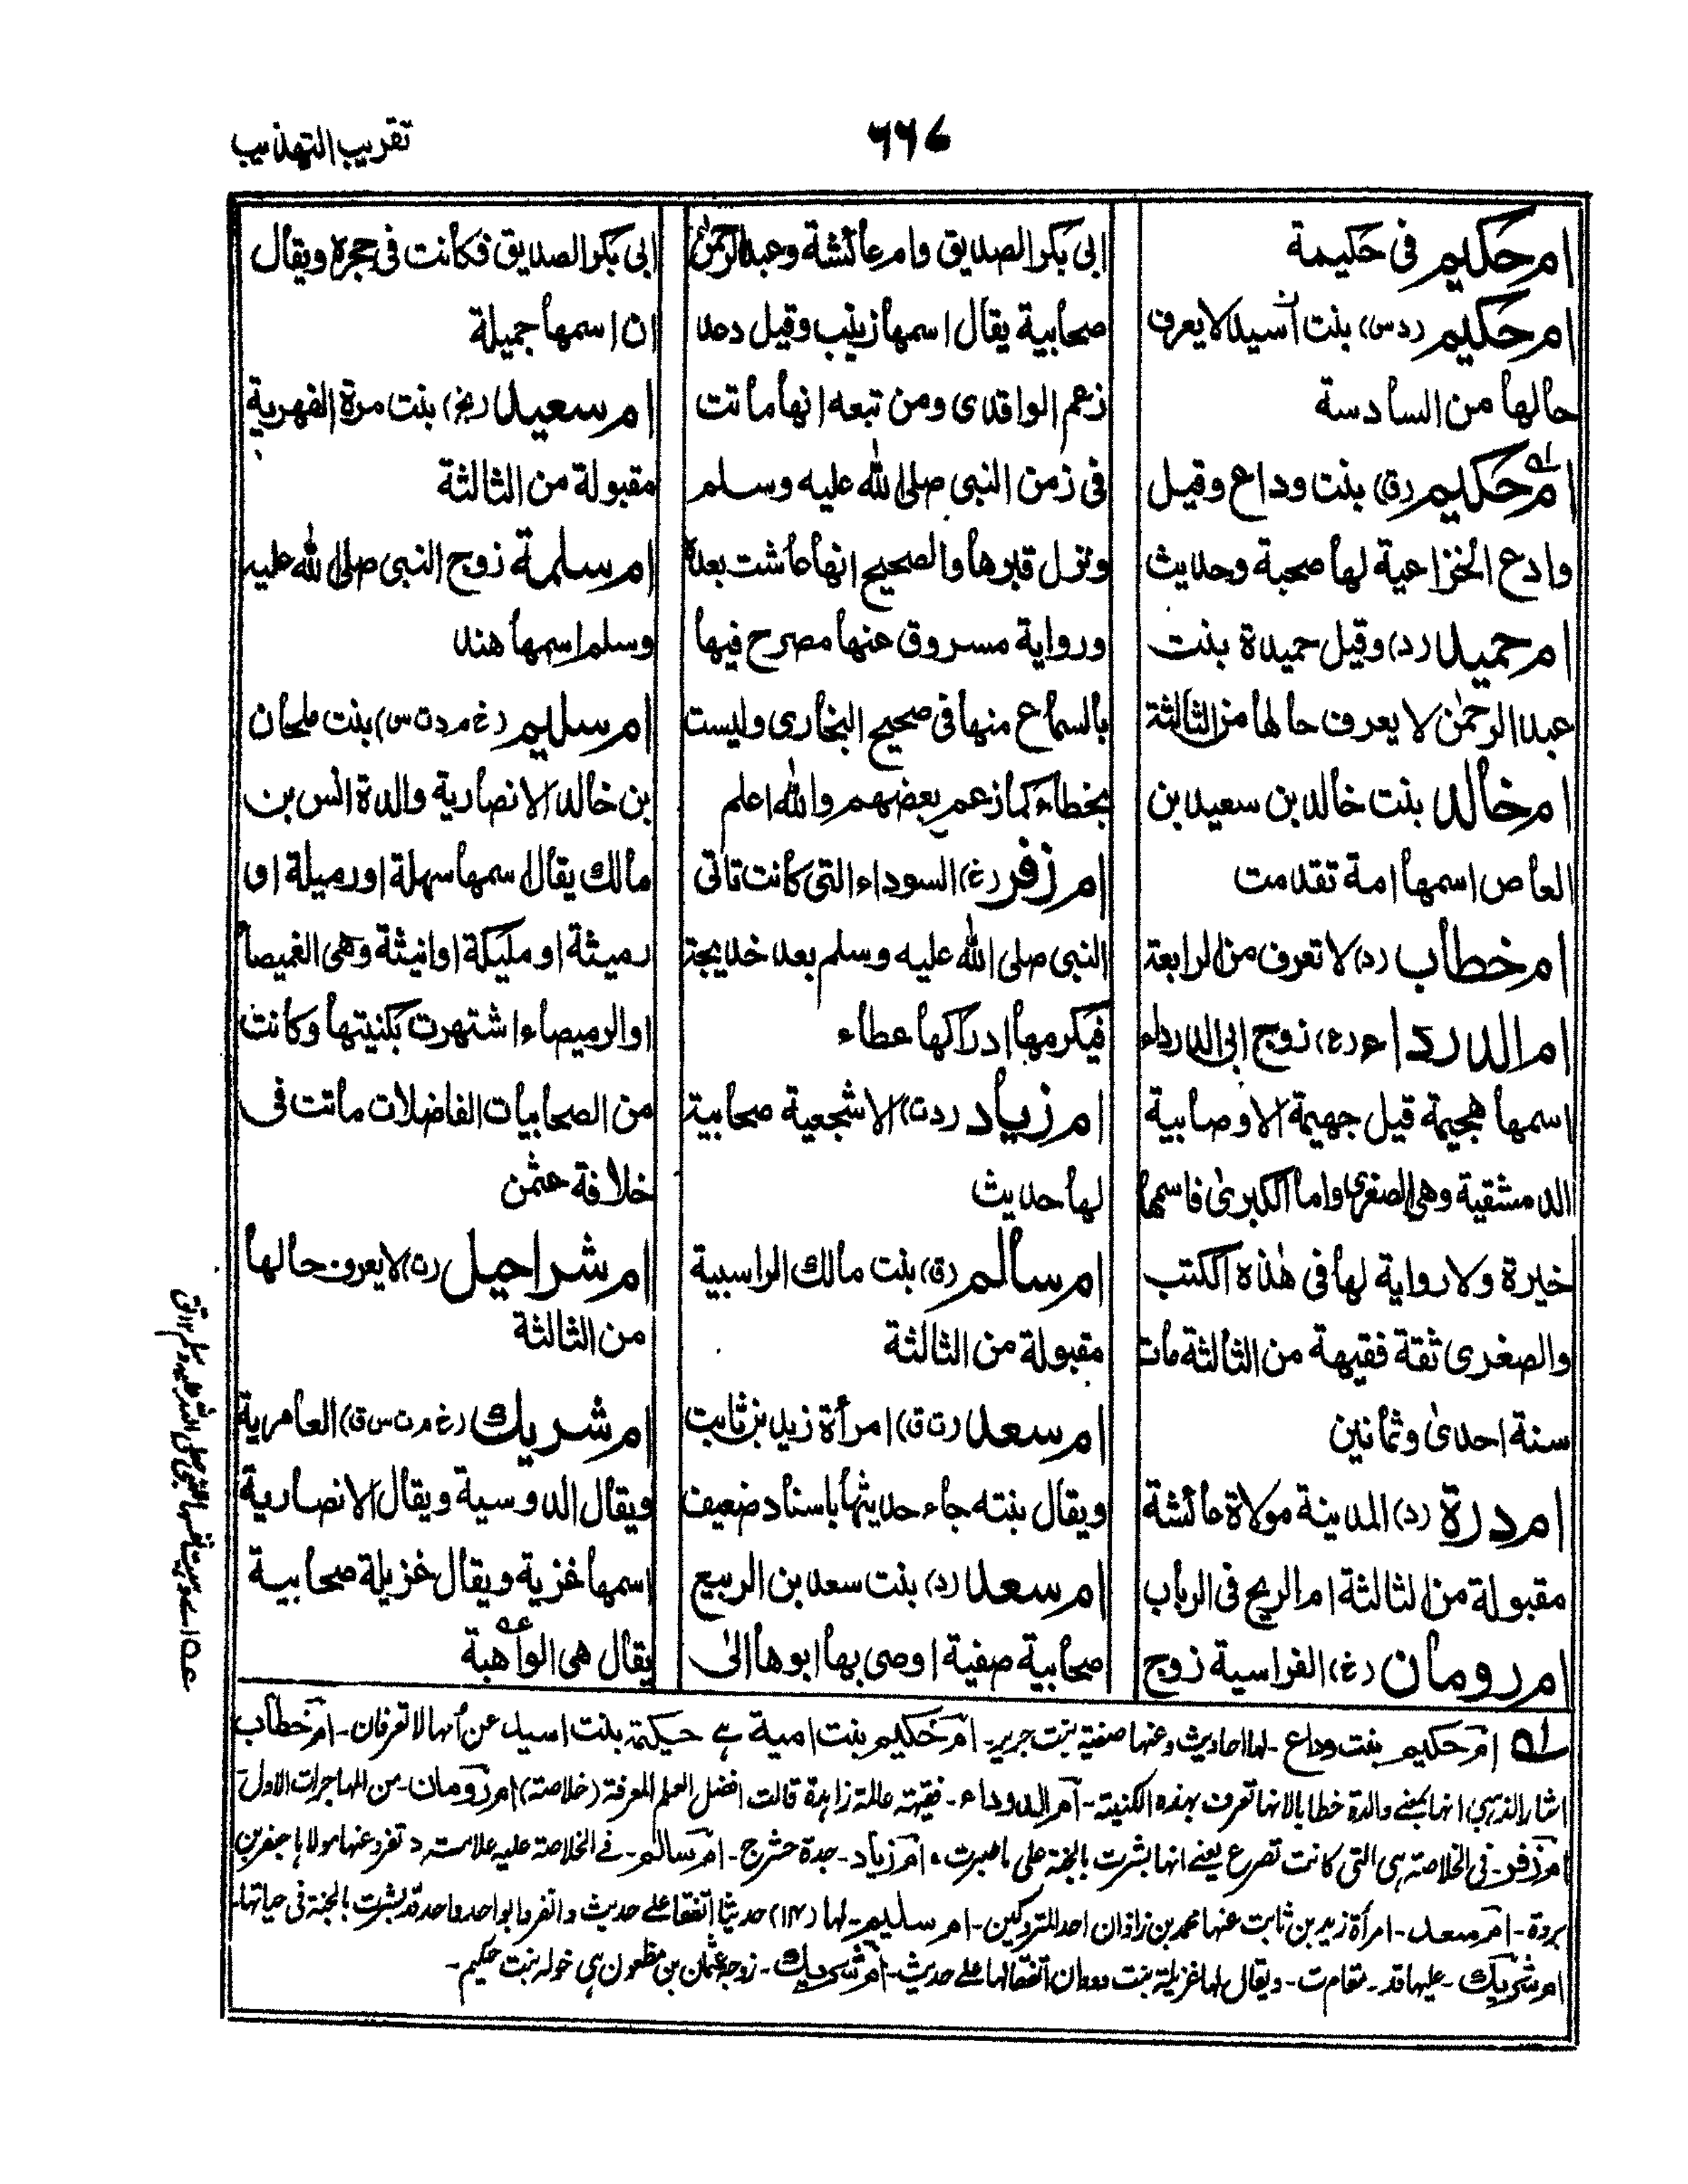 تقریب التهذیب
۶۶۷
ام حکیم فی حکیمة
ام حکیم (د س) بنت أسید لا یعرف
حالها من السادسة
ام حکیم (ق) بنت وداع وقیل
وادع الخزاعیة لها صحبة وحدیث
ام حمید (د) وقیل حمیدة بنت
عبد الرحمٰن لا یعرف حالها من الثالثة
ام خالد بنت خالد بن سعید بن
العاص اسمها امة تقدمت
ام خطاب (د) لا تعرف من الرابعة
ام الدرداء (ع) زوج ابی الدرداء
اسمها هجیمة قیل جهیمة الاوصابیة
الدمشقیة وهی الصغریٰ واما الکبریٰ فاسمها
خیرة ولا روایة لها فی هٰذه الکتب
والصغری ثقة فقیهة من الثالثة مات
سنة احدیٰ وثمانین
ام درة (د) المدینة مولاة عائشة
مقبولة من الثالثة ام الربح فی الرباب
ام رومان (خ) الفراسیة زوج
ابی بکر الصدیق وام عائشة وعبد الرحمٰن
صحابیة یقال اسمها زینب وقیل دعد
زعم الواقدی ومن تبعه انها ماتت
فی زمن النبی صلی الله علیه وسلم
ونزل قبرها والصحیح انها عاشت بعده
وروایة مسروق عنها مصرح فیها
بالسماع منها فی صحیح البخاری ولیست
بخطاء کما زعم بعضهم والله اعلم
ام زفر (خ) السوداء التی کانت تأتی
النبی صلی الله علیه وسلم بعد خدیجة
فیکرمها ادرکها عطاء
ام زیاد (د ت) الاشجعیة صحابیة
لها حدیث
ام سالم (ق) بنت مالك الراسبیة
مقبولة من الثالثة
ام سعد (ت ق) امرأة زید بن ثابت
ویقال بنته جاء حدیثها باسناد ضعیف
ام سعد (د) بنت سعد بن الربیع
صحابیة صفیة اوصی بها ابوها الیٰ
ابی بکر الصدیق فکانت فی حجره ویقال
ان اسمها جمیلة
ام سعید (بخ) بنت مرة الفهریة
مقبولة من الثالثة
ام سلمة زوج النبی صلی الله علیه
وسلم اسمها هند
ام سلیم (خ م د ت س) بنت ملحان
بن خالد الانصاریة والدة انس بن
مالك یقال اسمها سهلة او رمیلة او
رمیثة او ملیکة او انیثة وهی الغمیصا
او الرمیصاء اشتهرت بکنیتها وکانت
من الصحابیات الفاضلات ماتت فی
خلافة عثمٰن
ام شراحیل (ت) لا یعرف حالها
من الثالثة
ام شریك (خ م ت س ق) العامریة
ویقال الدوسیة ویقال الانصاریة
اسمها غزیة ویقال غزیلة صحابیة
یقال هی الواهبة
عه اے وہبت نفسها للنبی صلی الله علیه وسلم ۱۲ تق
له ام حکیم بنت وداع - لها احادیث وعنها صفیة بنت جریر - ام حکیم بنت امیة ہے حکیمة بنت اسید عن أمها لا تعرفان - ام خطاب
اشار الذہبی انها بمعنے والدة خطاب لا انها تعرف بهذه الکنیة - ام الدرداء - فقیهة عالمة زاهدة قالت افضل العلم المعرفة (خلاصة) ام رومان - من المهاجرات الاول
ام زفر - فی الخلاصة ہی التی کانت تصرع یعنے انها بشرت بالجنة علی ما صبرت - ام زیاد - جدة حشرج - ام سالم - فے الخلاصة علیه علامت د تفرد عنها مولاها جعفر بن
بردة - ام سعد - امرأة زید بن ثابت عنها محمد بن زاذان احد المتروکین - ام سلیم - لها (۱۴) حدیثا اتفقا علے حدیث وانفردا بواحد واحد قد بشرت بالجنة فی حیاتها -
ام شریك - علیها قد - تقامت - ویقال لها غزیلة بنت دودان اتفقا لها علے حدیث - ام شریك - زوجة عثمان بن مظعون ہی خولہ بنت حکیم -